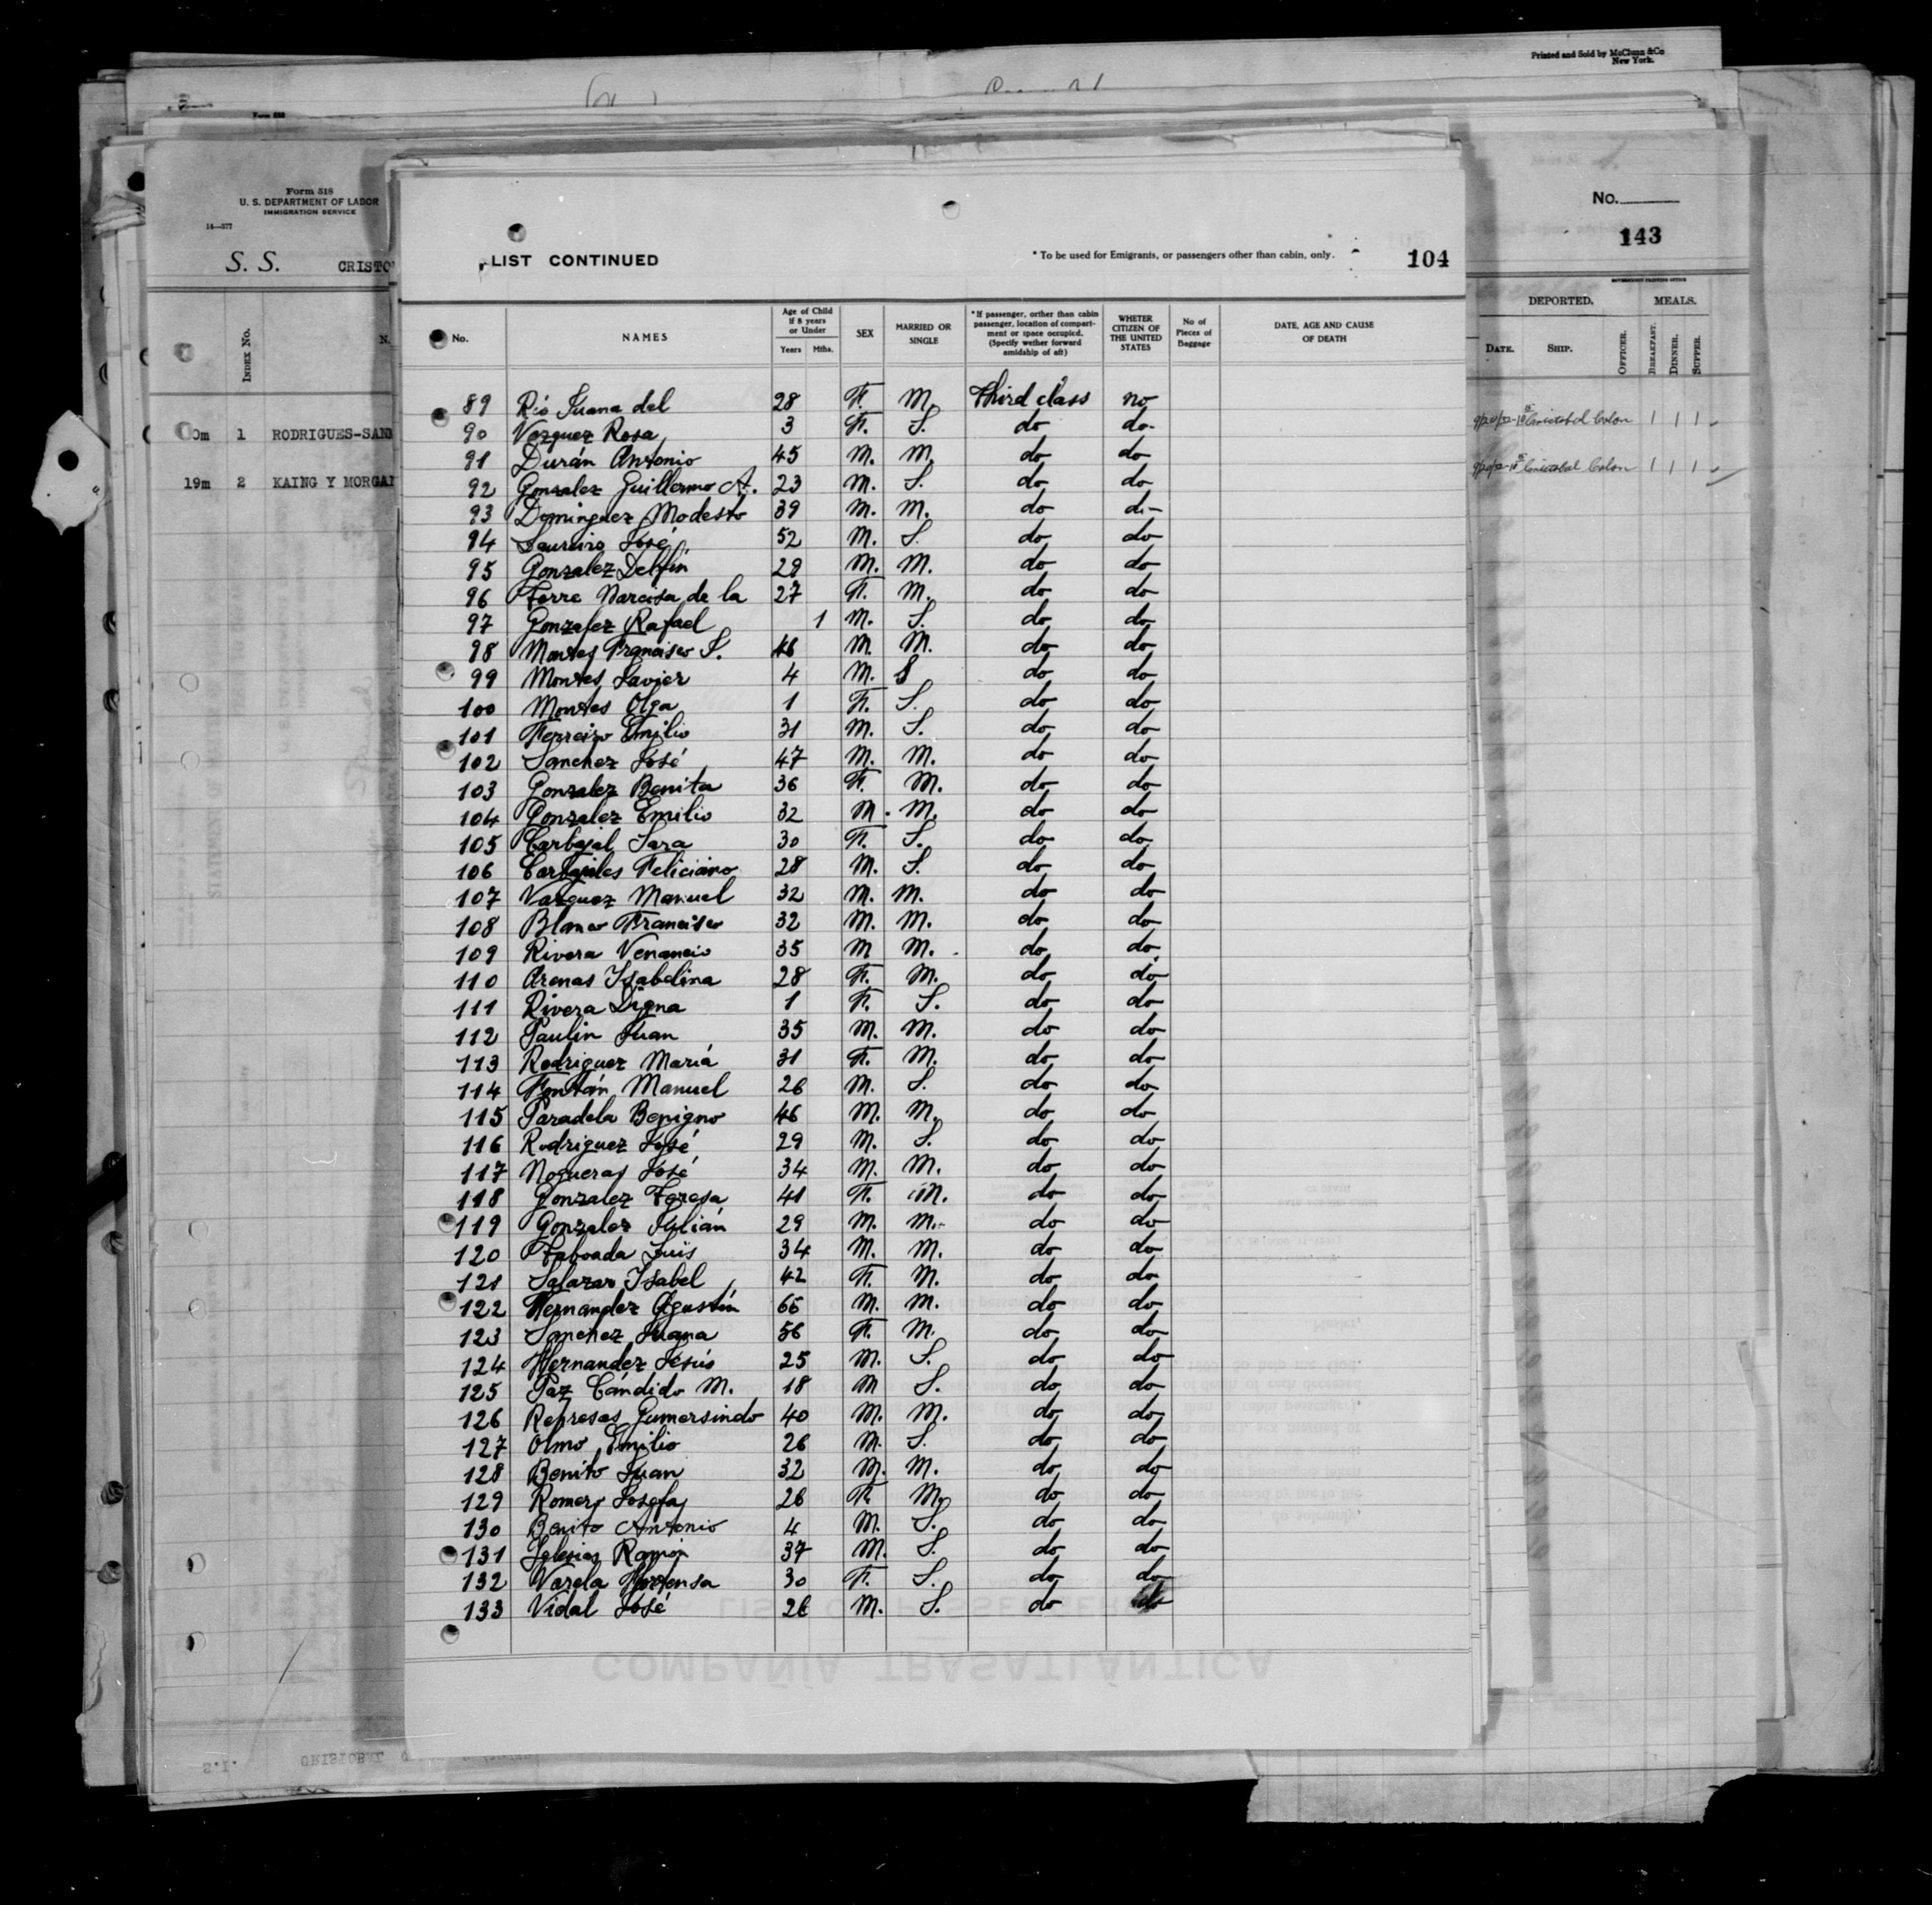 Printed and Sold by McClunn & Co
New York.
Form 518
U. S. DEPARTMENT OF LABOR
IMMIGRATION SERVICE
14—377
S. S. CRISTO
INDEX No.
0m 1 RODRIGUES-SAN
19m 2 KAING Y MORGA
No.
143
GOVERNMENT PRINTING OFFICE
DEPORTED. MEALS.
DATE. SHIP. OFFICER. BREAKFAST. DINNER. SUPPER.
Cristobal Colon 1 1 1
Cristobal Colon 1 1 1
LIST CONTINUED * To be used for Emigrants, or passengers other than cabin, only. 104
No. NAMES Age of Child if 8 years or Under Years Mths. SEX MARRIED OR SINGLE * If passenger, orther than cabin passenger, location of compartment or space occupicd. (Specify wether forward amidship of aft) WHETER CITIZEN OF THE UNITED STATES No of Pieces of Baggage DATE, AGE AND CAUSE OF DEATH
89 Río Juana del 28 F. M. third class no
90 Vazquez Rosa 3 F. S. do do
91 Durán Antonio 45 M. M. do do
92 Gonzalez Guillermo A. 23 M. S. do do
93 Dominguez Modesto 39 M. M. do do
94 Laureiro José 52 M. S. do do
95 Gonzalez Delfín 29 M. M. do do
96 Torre Narcisa de la 27 F. M. do do
97 Gonzalez Rafael 1 M. S. do do
98 Montes Francisco S. 46 M. M. do do
99 Montes Javier 4 M. S do do
100 Montes Olga 1 F. S. do do
101 Ferreiro Emilio 31 M. S. do do
102 Sanchez José 47 M. M. do do
103 Gonzalez Benita 36 F. M. do do
104 Gonzalez Emilio 32 M. M. do do
105 Carbajal Sara 30 F. S. do do
106 Carbajales Feliciano 28 M. S. do do
107 Vazquez Manuel 32 M. M. do do
108 Blanco Francisco 32 M. M. do do
109 Rivera Venancio 35 M M. do do
110 Arenas Isabelina 28 F. M. do do
111 Rivera Digna 1 F. S. do do
112 Paulin Juan 35 M. M. do do
113 Rodriguez María 31 F. M. do do
114 Fontán Manuel 26 M. S. do do
115 Paradela Benigno 46 M. M. do do
116 Rodriguez José 29 M. S. do do
117 Nogueras José 34 M. M. do do
118 Gonzalez Teresa 41 F. M. do do
119 Gonzalez Julián 29 M. M. do do
120 Taboada Luis 34 M. M. do do
121 Salazar Isabel 42 F. M. do do
122 Hernandez Agustín 65 M. M. do do
123 Sanchez Juana 56 F. M. do do
124 Hernandez Jesús 25 M. S. do do
125 Paz Cándido M. 18 M S. do do
126 Represas Gumersindo 40 M. M. do do
127 Olmo Emilio 26 M. S. do do
128 Benito Juan 32 M. M. do do
129 Romero Josefa 26 F. M. do do
130 Benito Antonio 4 M. S. do do
131 Iglesias Ramón 37 M. S. do do
132 Varela Hortensa 30 F. S. do do
133 Vidal José 26 M. S. do do
COMPAÑÍA TRASATLÁNTICA